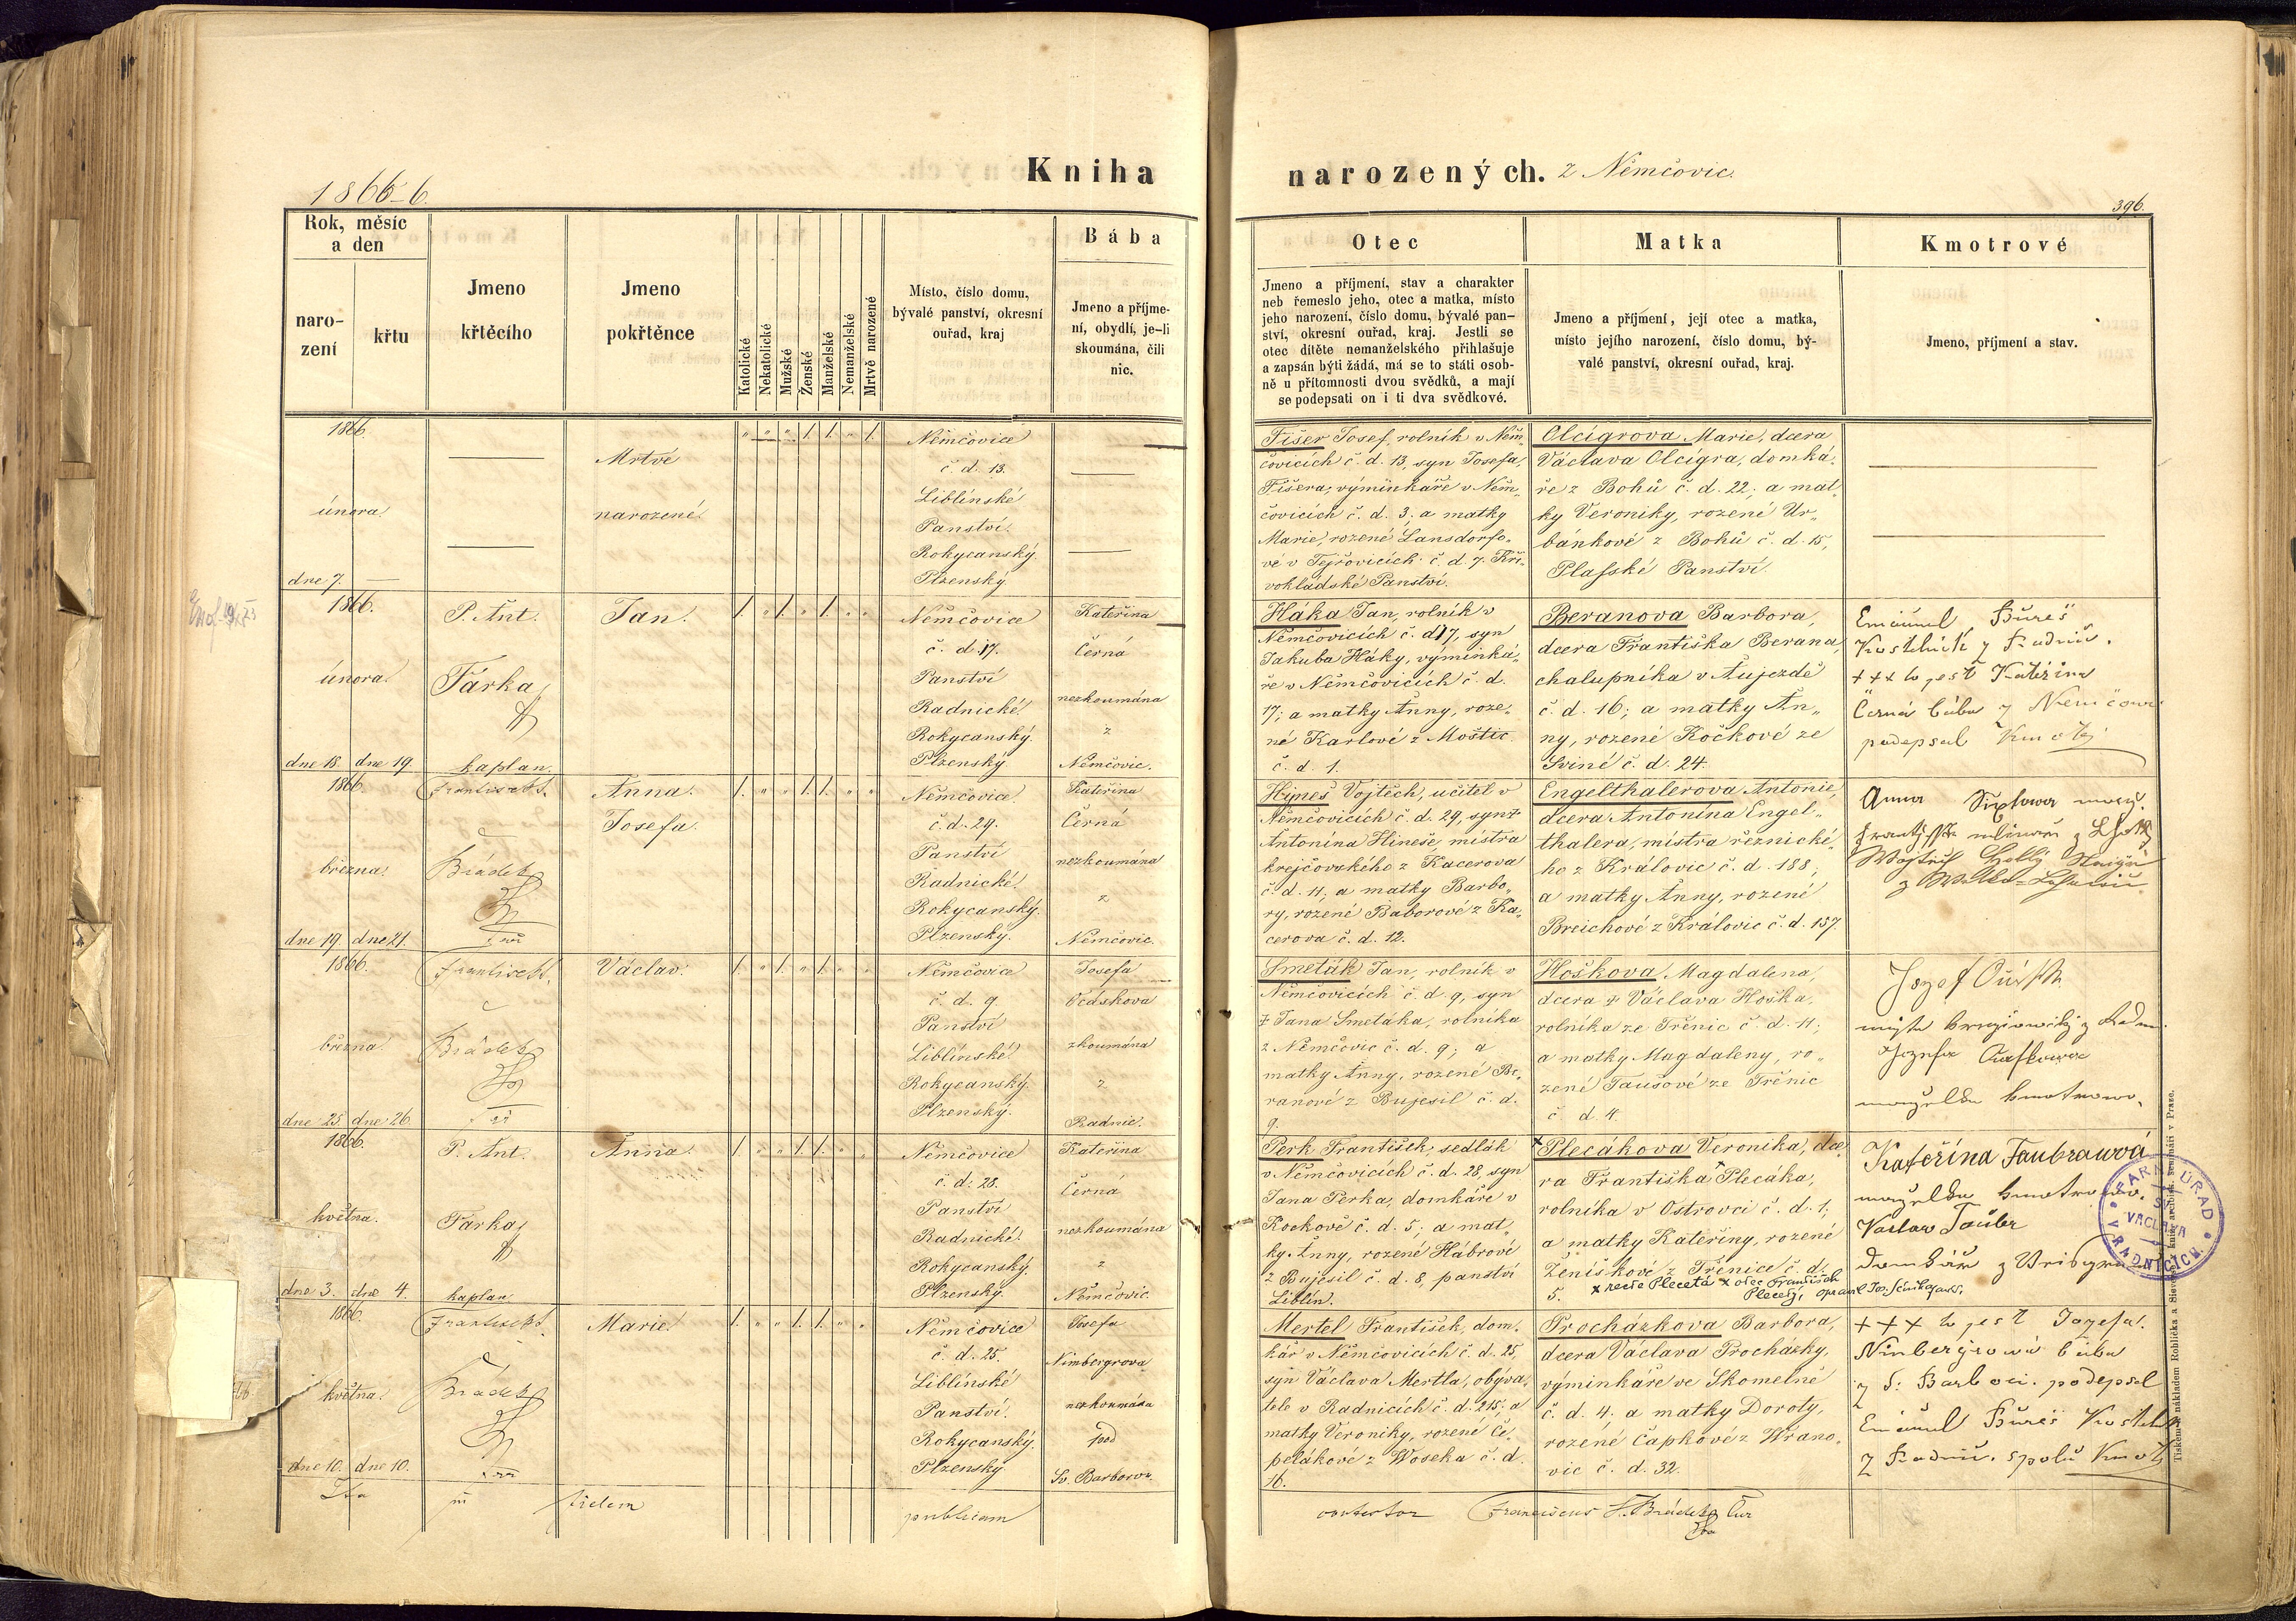 1866-6
Kniha narozených. z Němčovic.
396.
Rok, měsíc
a den
naro-
zení
křtu
Jmeno
křtěcího
Jmeno
pokřtěnce
Katolické
Nekatolické
Mužské
Ženské
Manželské
Nemanželské
Mrtvě narozené
Místo, číslo domu,
bývalé panství, okresní
ouřad, kraj
Bába
Jmeno a příjme-
ní, obydlí, je-li
skoumána, čili
nic.
Otec
Jmeno a příjmení, stav a charakter
neb řemeslo jeho, otec a matka, místo
jeho narození, číslo domu, bývalé pan-
ství, okresní ouřad, kraj. Jestli se
otec dítěte nemanželského přihlašuje
a zapsán býti žádá, má se to státi osob-
ně u přítomnosti dvou svědků, a mají
se podepsati on i ti dva svědkové.
Matka
Jmeno a příjmení, její otec a matka,
místo jejího narození, číslo domu, bý-
valé panství, okresní ouřad, kraj.
Kmotrové
Jmeno, příjmení a stav.
1866.
února
dne 7.
Mrtvé
narozené
" " " 1. 1. " 1.
Němčovice
č. d. 13.
Liblínské
Panství.
Rokycanský.
Plzenský.
Fišer Josef, rolník v Něm„
čovicích č. d. 13, syn Josefa
Fišera, výminkáře v Něm„
čovicích č. d. 3; a matky
Marie, rozené Lansdorfo„
vé v Tejřovicích č. d. 7. Kři„
vokladské Panství.
Olcigrova Marie, dcera
Václava Olcigra, domká„
ře z Bohů č. d. 22; a mat„
ky Veroniky, rozené Ur„
bánkové z Bohů č. d. 15,
Plasské Panství.
1866.
února
dne 18. dne 19.
P. Ant.
Fárka
kaplan.
Jan.
1. " 1. " 1. " "
Němčovice
č. d. 17.
Panství
Radnické
Rokycanský.
Plzenský
Kateřina
Černá
nezkoumána
z
Němčovic.
Háka Jan, rolník v
Němčovicích č. d 17, syn
Jakuba Háky, výminká„
ře v Němčovicích č. d.
17; a matky Anny, roze„
né Karlové z Moštic
č. d. 1.
Beranova Barbora,
dcera Františka Berana,
chalupníka v Aujezdě
č. d. 16; a matky An„
ny, rozené Kočkové ze
Sviné č. d. 24.
Emanuel Bureš
Kostelník z Radnic.
+++ to jest Kateřina
Černá bába z Němčovic
podepsal Kmotr
1866.
března
dne 19. dne 21.
Frantisek
Brádek
Anna
Josefa.
1. " " 1. 1. " "
Němčovice.
č. d. 29.
Panství
Radnické
Rokycanský.
Plzenský.
Kateřina
Černá
nezkoumána
z
Němčovic.
Hineš Vojtěch, učitel v
Němčovicích č. d. 29, syn
Antonína Hineše, mistra
krejčovského z Kacerova
č. d. 11, a matky Barbo„
ry, rozené Baborové z Ka„
cerova č. d. 12.
Engelthalerova Antonie,
dcera Antonína Engel„
thalera, mistra řeznické„
ho z Královic č. d. 188;
a matky Anny, rozené
Breichové z Královic č. d. 157.
Anna
1866.
března
dne 25. dne 26.
Frantisek
Brádek
Václav.
1. " 1. " 1. " "
Němčovice
č. d. 9.
Panství
Liblínské
Rokycanský.
Plzenský.
Josefa
Vcáskova
zkoumána
z
Radnic.
Smeták Jan, rolník v
Němčovicích č. d. 9, syn
‡ Jana Smetáka, rolníka
z Němčovic č. d. 9; a
matky Anny, rozené Be„
ranové z Bujesil č. d.
9.
Hoškova Magdalena,
dcera ‡ Václava Hoška,
rolníka ze Třěnic č. d. 11;
a matky Magdaleny, ro„
zené Taušové ze Třěnic
č. d. 4.
Jozef
1866.
května.
dne 3. dne 4.
P. Ant.
Fárka
kaplan
Anna.
1. " " 1. 1. " "
Němčovice
č. d. 28.
Panství
Radnické
Rokycanský.
Plzenský.
Kateřina
Černá
nezkoumána
z
Němčovic
Perk František, sedlák
v Němčovicích č. d. 28, syn
Jana Perka, domkáře v
Kockově č. d. 5; a mat„
ky Anny, rozené Hábrové
z Bujesil č. d. 8, panství
Liblín.
× Plecákova Veronika, dce„
ra Františka × Plecáka,
rolníka v Ostrovci č. d. 1;
a matky Kateřiny, rozené
Ženíškové z Třěnice č. d.
5. × recte Plecetá × otec František
Plecetý, opravil
Kateřina Taubrawá
Václav Taubr
FARNÍ ÚŘAD
SV.
VÁCLAVA
V RADNICÍCH
1866.
května
dne 10. dne 10.
Frantisek
Brádek
Marie
1. " " 1. 1. " "
Němčovice
č. d. 25.
Liblínské
Panství.
Rokycanský.
Plzenský
Josefa
Nimbergrova
nezkoumána
pod
Sv. Barborou
Mertel František, dom„
kář v Němčovicích č. d. 25,
syn Václava Mertla, obýva„
tele v Radnicích č. d. 215; a
matky Veroniky, rozené Če„
pelákové z Woseka č. d.
16.
Procházkova Barbora,
dcera Václava Procházky,
výminkáře ve Skomelně
č. d. 4; a matky Doroty,
rozené Čapkové z Wrano„
vic č. d. 32.
+++ to jest Jozefa
Nimbergrová bába
z S: Barbori. podepsal
Emanuel Bureš Kostelník
z Radnic. spolu Kmotr
Ita in fidem publicam contestor Franciscus Brádek
Tiskem a nákladem Rohlíčka a Sieverse, knihk. arcibisk. semináři v Praze.